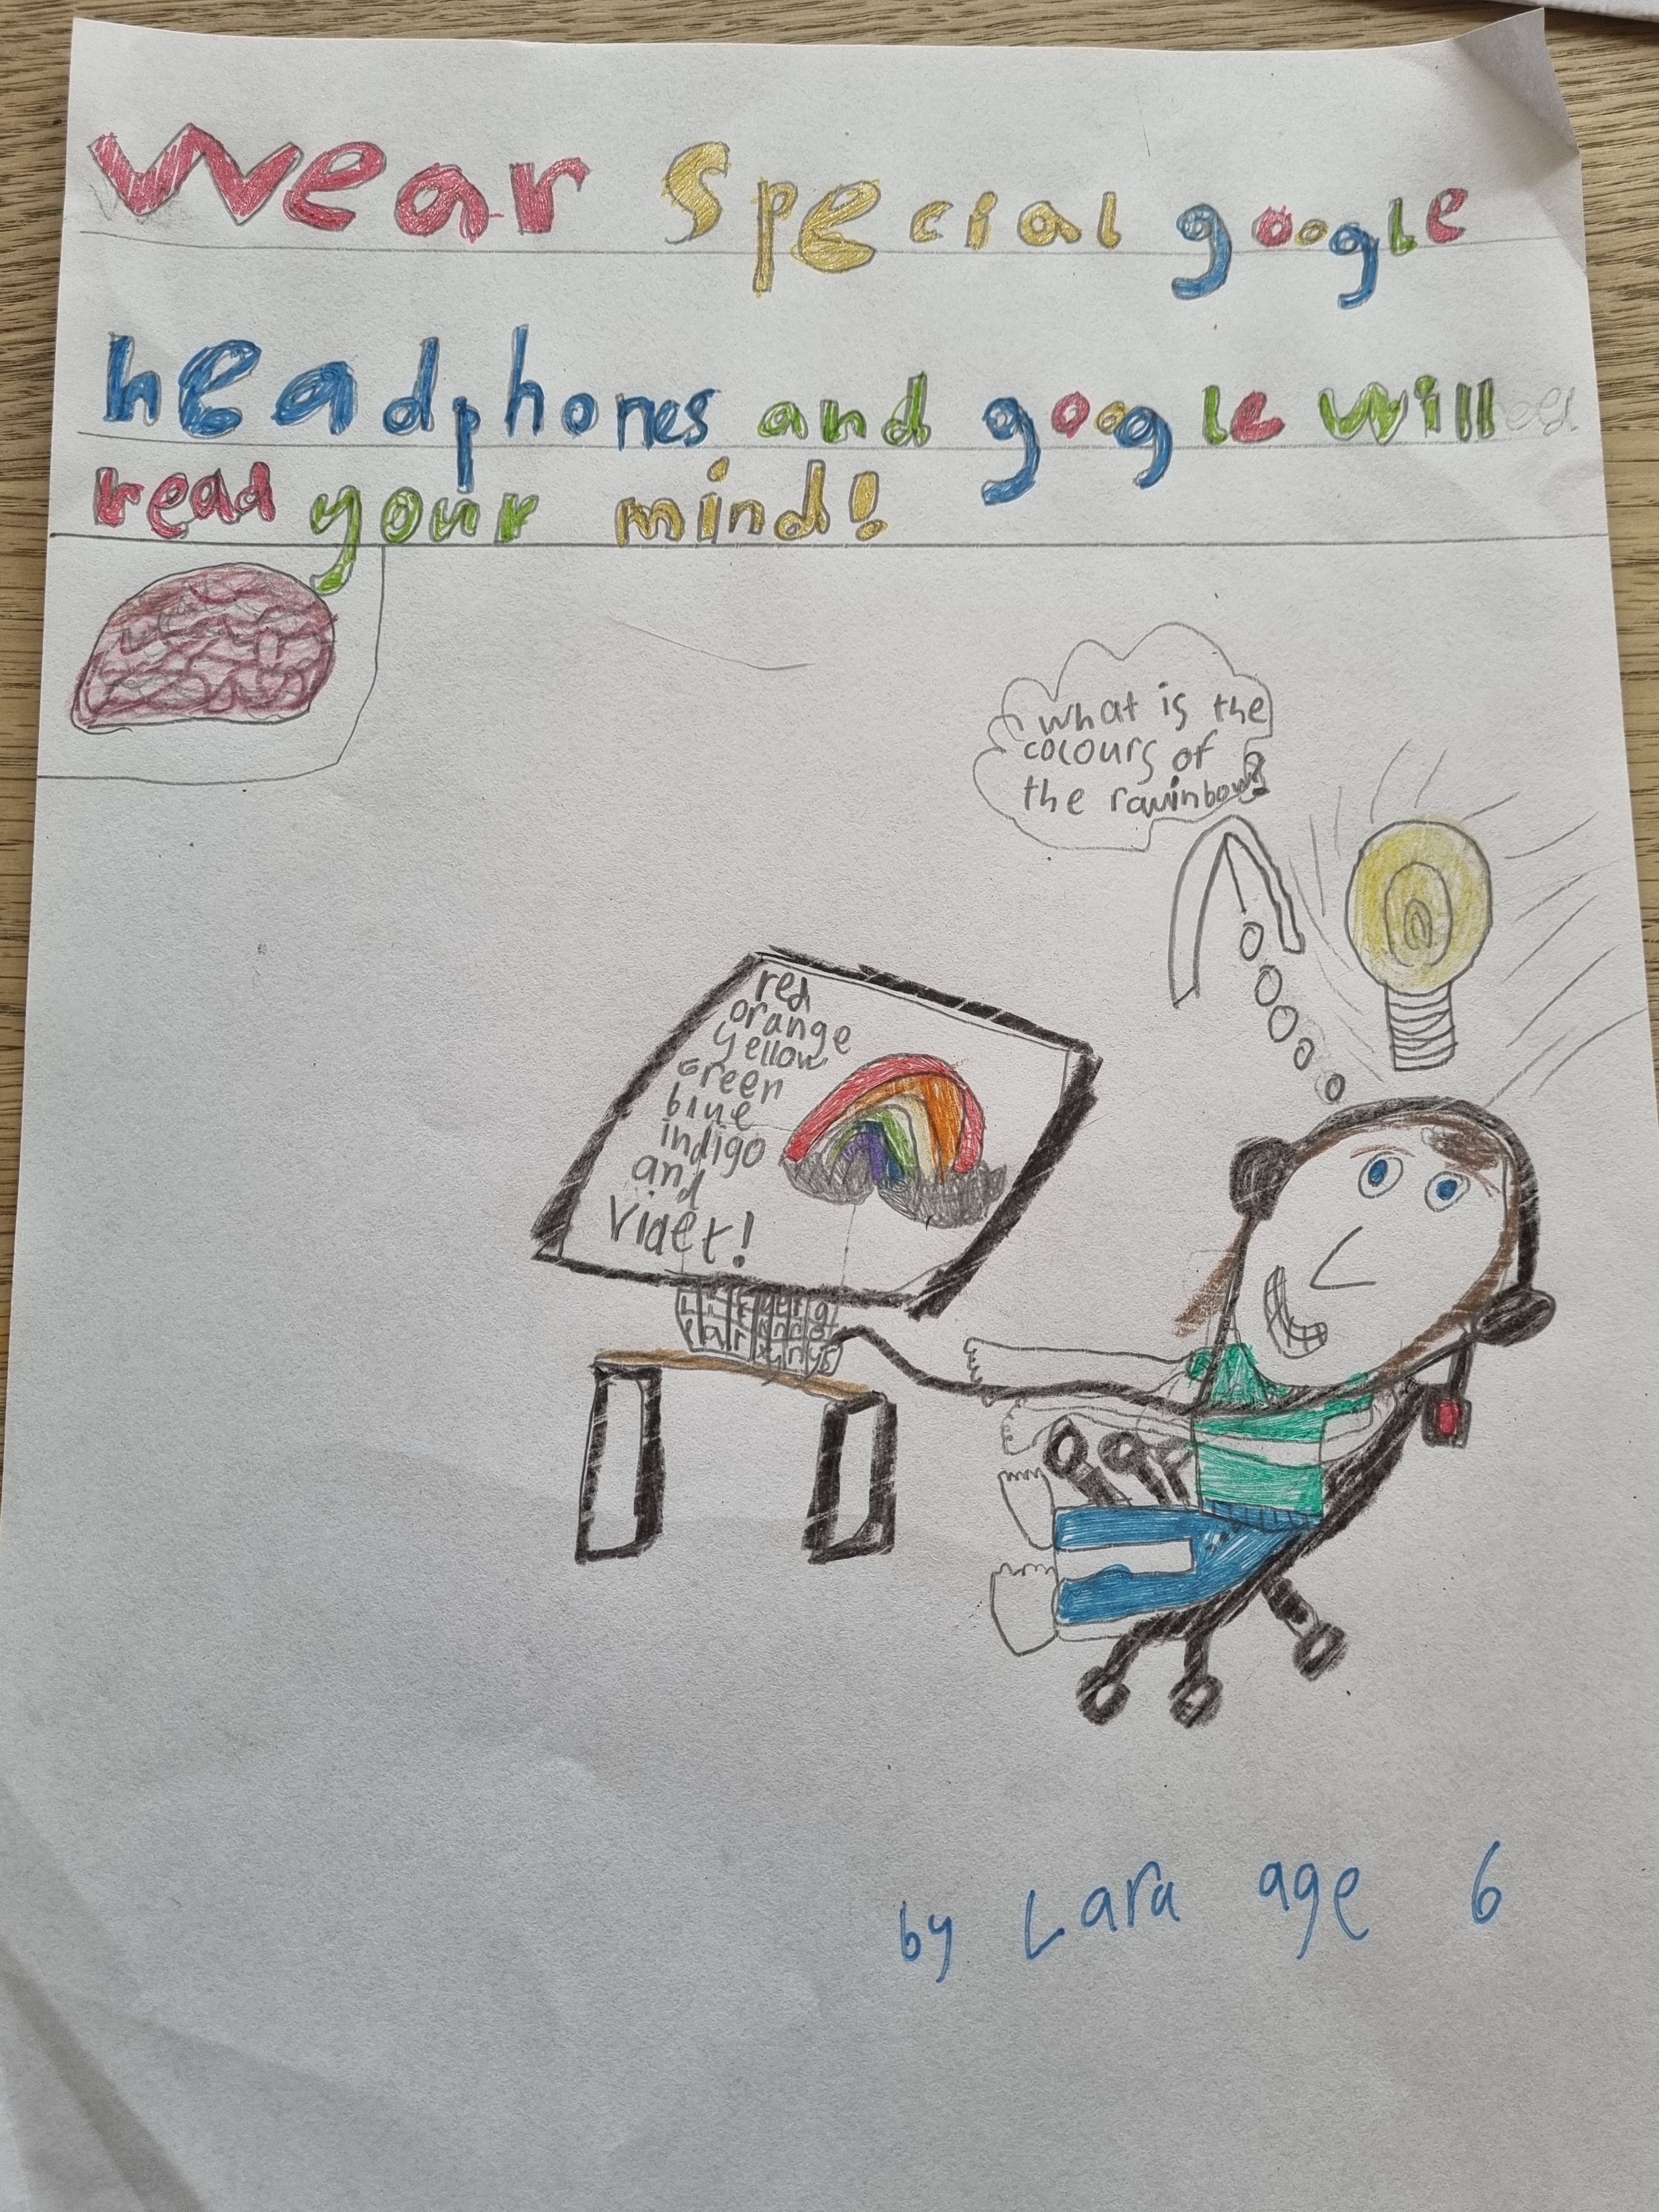 wear special google
headphones and google will
read your mind!
what is the
colours of
the rawinbow?
red
orange
yellow
Green
blue
indigo
and
Vilaet!
by Lara age 6